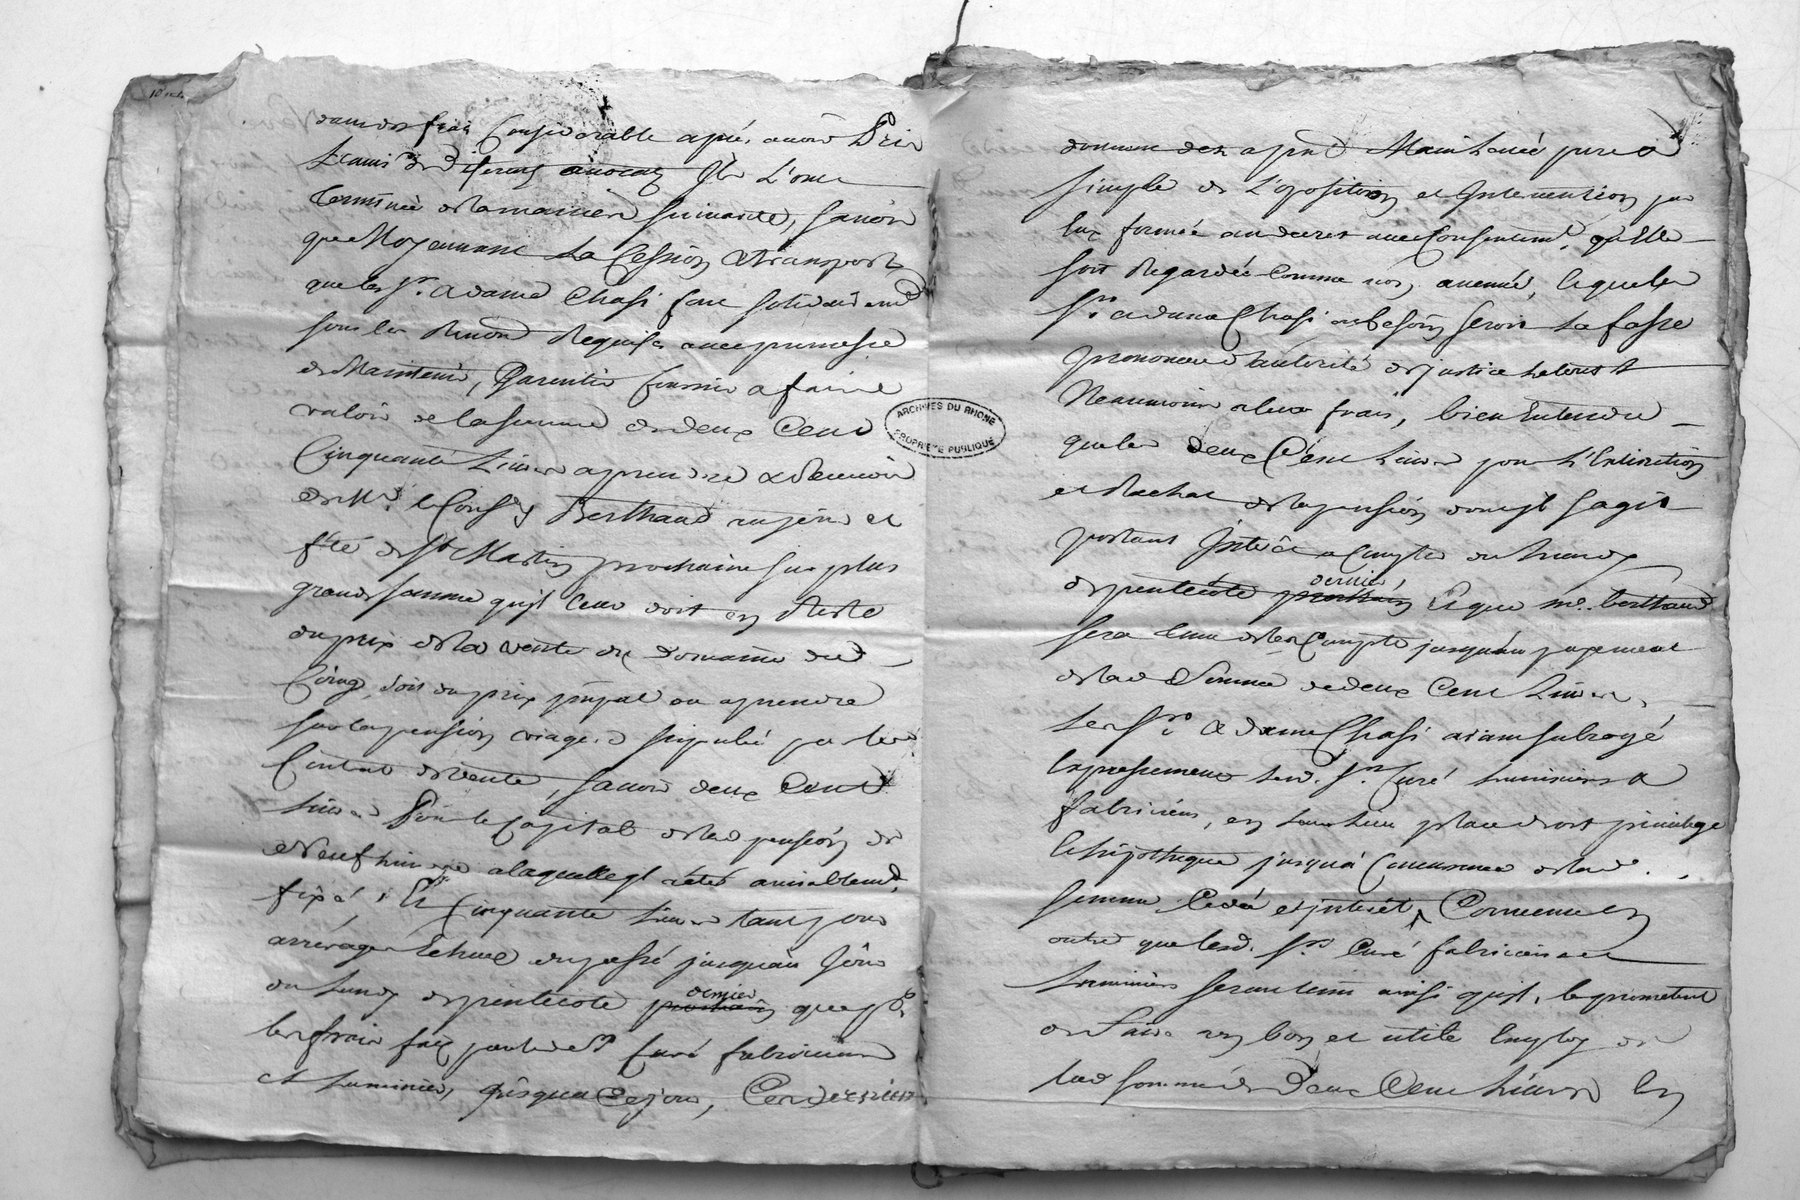 dans des frais Considerable apres avoir Pris
Lavis de diferens avocats Ils L'ont
Terminée de la maniere suivante, savoir
que Moyennant La Cession & transport
que les Sr. & dame Chasi font solidairemt
sous les Renon Requises avec promesse
de Maintenir, Garentir fournir & faire
valoir de la somme de deux Cent
Cinquante Livres a prendre & Recevoir
de Mr. le Cons.er Berthaud
fête de St Martin prochaine sur plus
grande somme quil leur doit en Reste
du prix de la vente du Domaine du
Coing, soit du prix pnpal ou a prendre
sur la pension viagere stipulée par led
Contrat de vente, savoir deux Cent
Livres Pour le Capital de lad pension de
neuf livres a laquelle il a été amiablemt
fixé, Et Cinquante Livres tant pour
arrérages Echus du passé jusqu'au Jour
du Lundy de pentecôte dernier que pr.
les frais faits par led Sr Curé fabriciens
et Luminiers, jusqua Ce jour, Ces derniers
ARCHIVES DU RHÔNE
PROPRIÉTÉ PUBLIQUE
donnent des a pnt Main Levée pure &
simple de L'oposition et Intervention par
Eux formée au decret avec Consentemt. qu'Elle
soit Regardée Comme non avenue, lesquels
Srs & dame Chasi au besoin feront La fasse
prononcer d'autorité de justice Le tout
Neanmoins a leur frais, bien Entendu
que les deux Cent Livres pour L'Extinction
et Rachat de la pension dont il sagit
portant Intérêt a Compter du Lundy
de pentecôte dernier, Et que Mr. Berthaud
sera tenu de les Compter jusqu'au payement
de lad Somme de deux Cent Livres,
Les Srs & dame Chasi aiant subrogé
Expressement led. Sr. Curé Luminiers &
fabriciens, en leur Lieu place droit privilege
& hipotheque jusqu'a Concurrence de lad.
somme Cedée et intérêt, Convenu En
outre que lesd. Srs. Curé fabriciens et
Luminiers seront tenus ainsi quil, le promettent
de faire un bon et utile Employ de
lad somme de Deux Cent Livres En